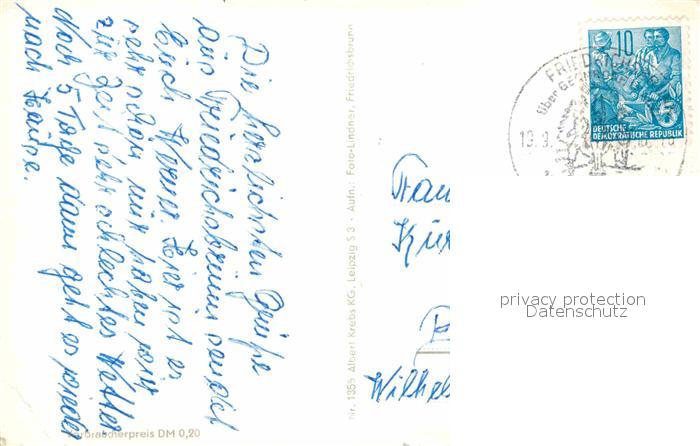 Die herzlichsten Grüße
aus Friedrichsbrunn sendet
Euch Werner. Hier ist es
sehr schön nur haben wir
zur Zeit sehr schlechtes Wetter
Noch 5 Tage dann geht es wieder
nach Hause.
Verbraucherpreis DM 0,20
Nr. 1355 Albert Krebs KG, Leipzig S 3 · Aufn.: Foto-Lindner, Friedrichsbrunn
10
5
DEUTSCHE
DEMOKRATISCHE REPUBLIK
FRIEDRICHSBRUNN
über GERNRODE
19.9.
Wilhel
privacy protection
Datenschutz